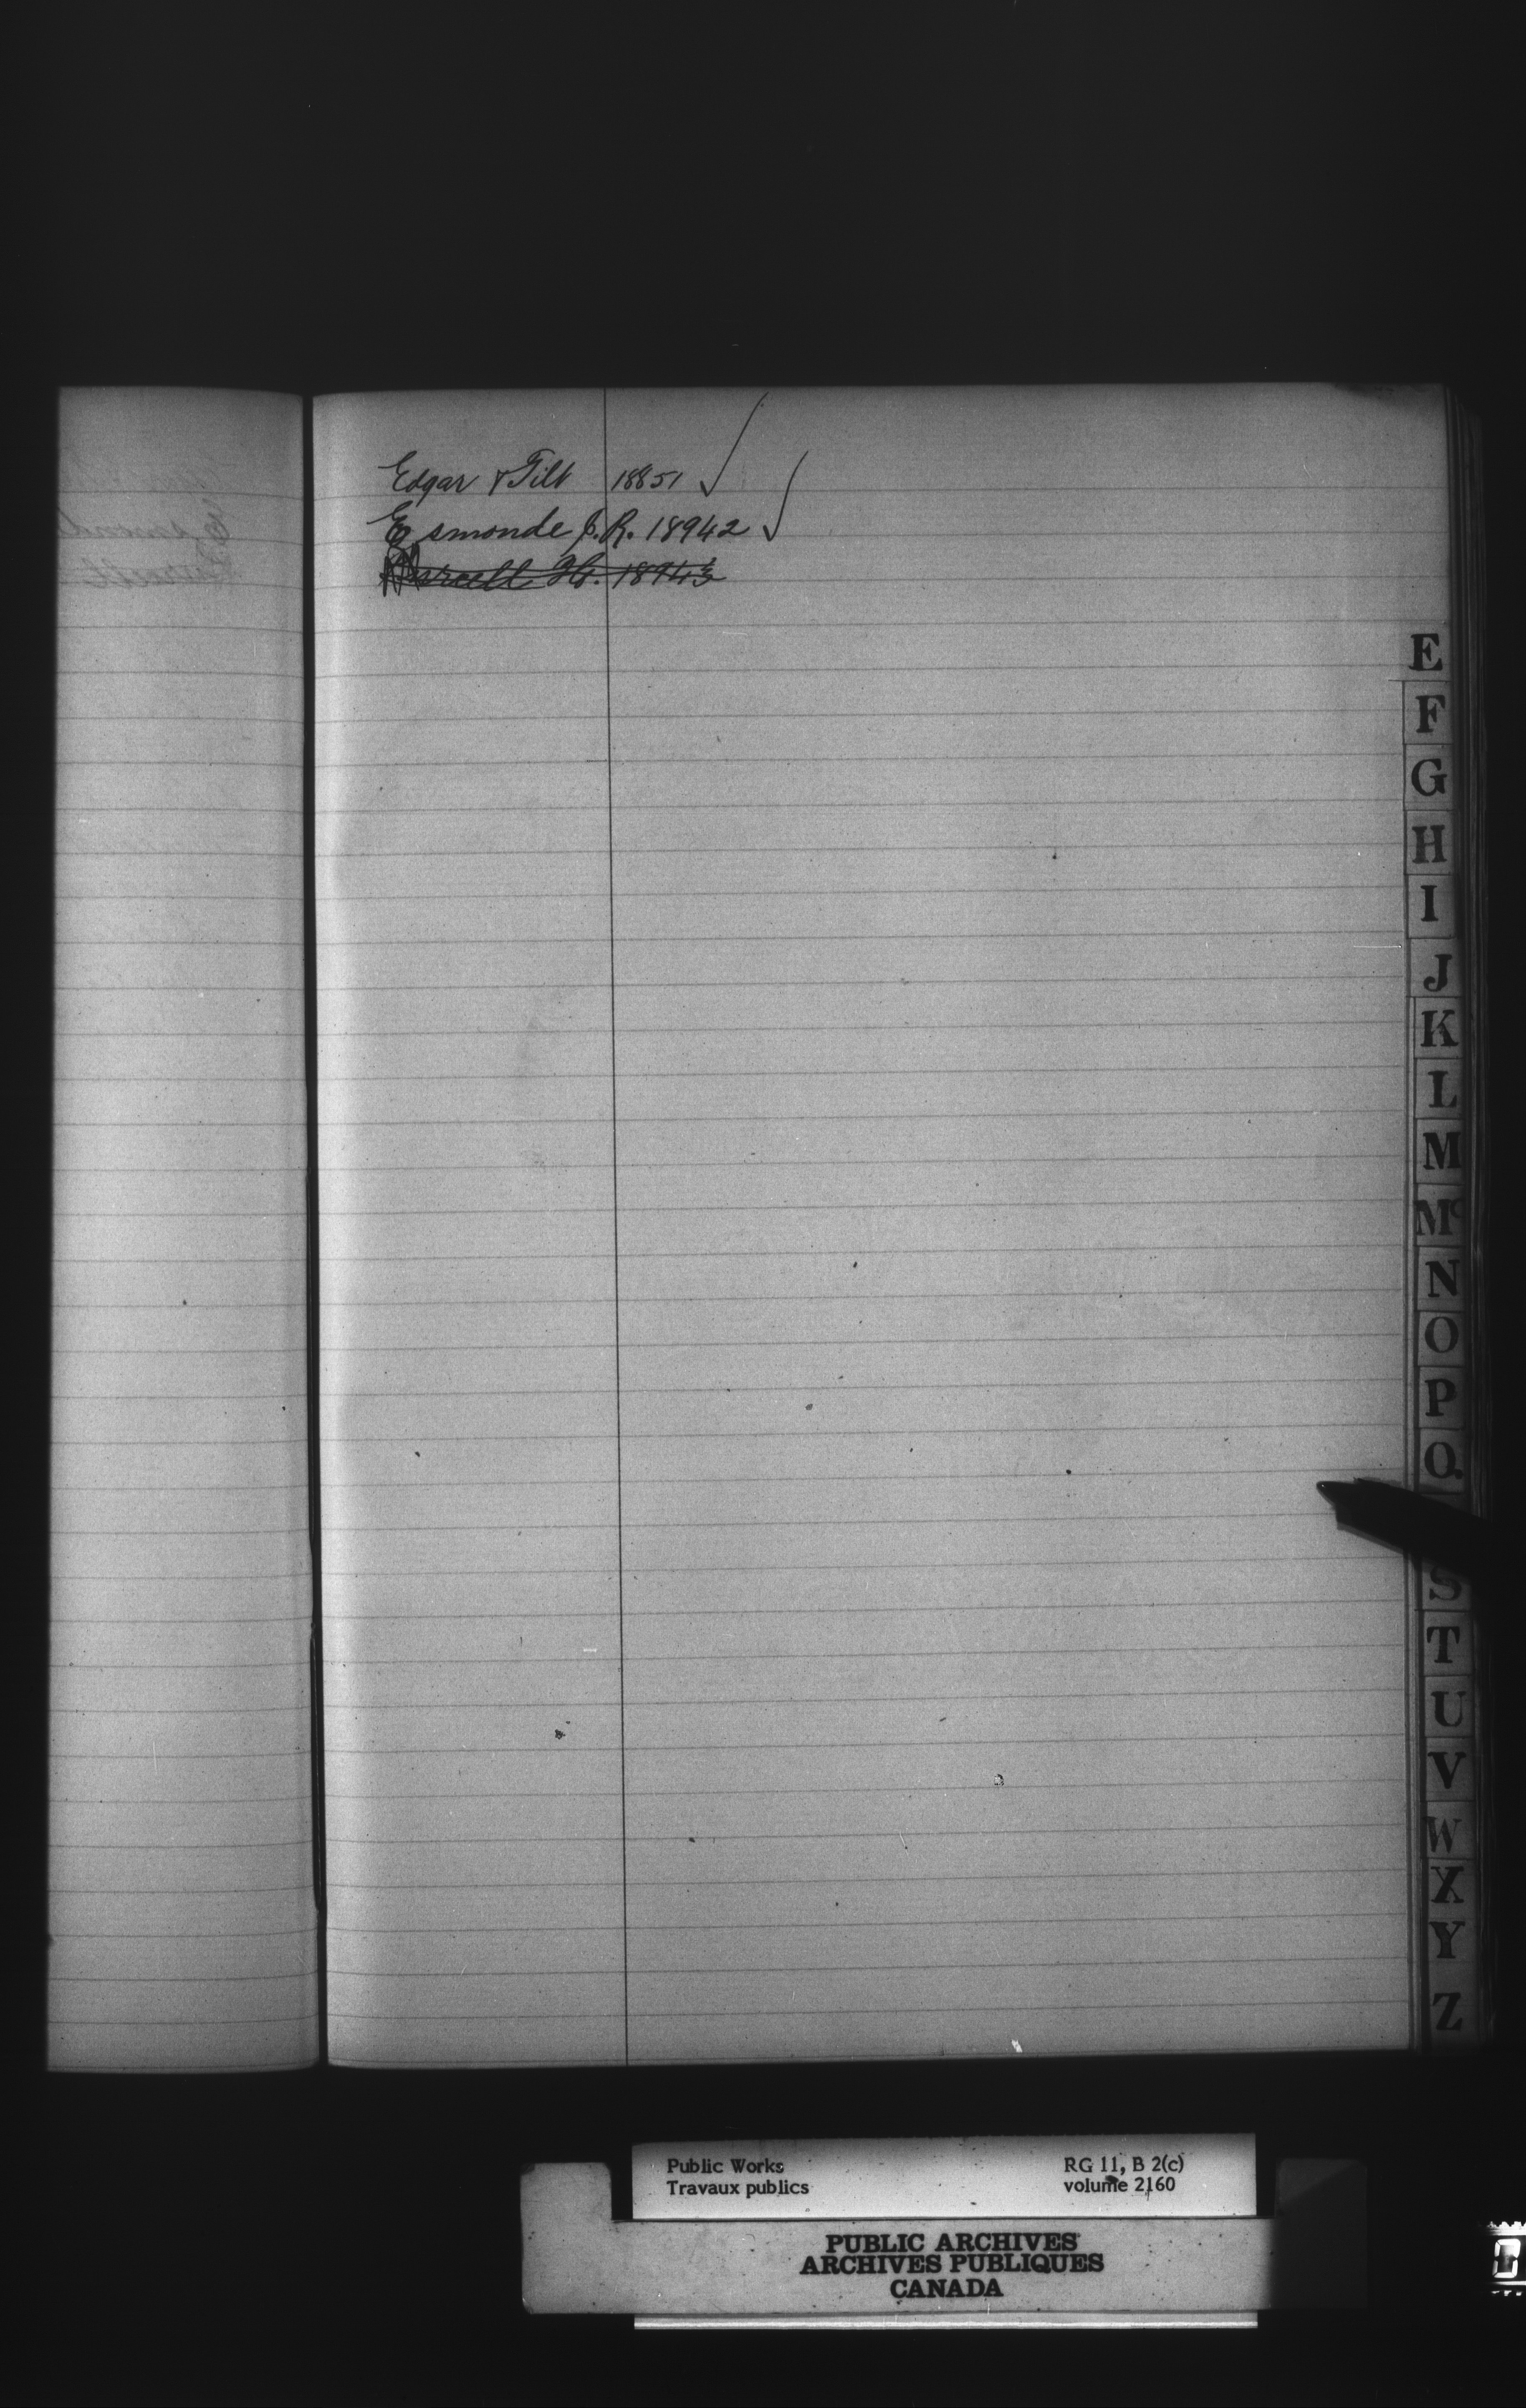 Edgar & Tilt 18851 √
Esmonde J.R. 18942 √
18943
E
F
G
H
I
J
K
L
M
Mc
N
O
P
Q
S
T
U
V
W
X
Y
Z
Public Works
Travaux publics
RG 11, B 2(c)
volume 2160
PUBLIC ARCHIVES
ARCHIVES PUBLIQUES
CANADA